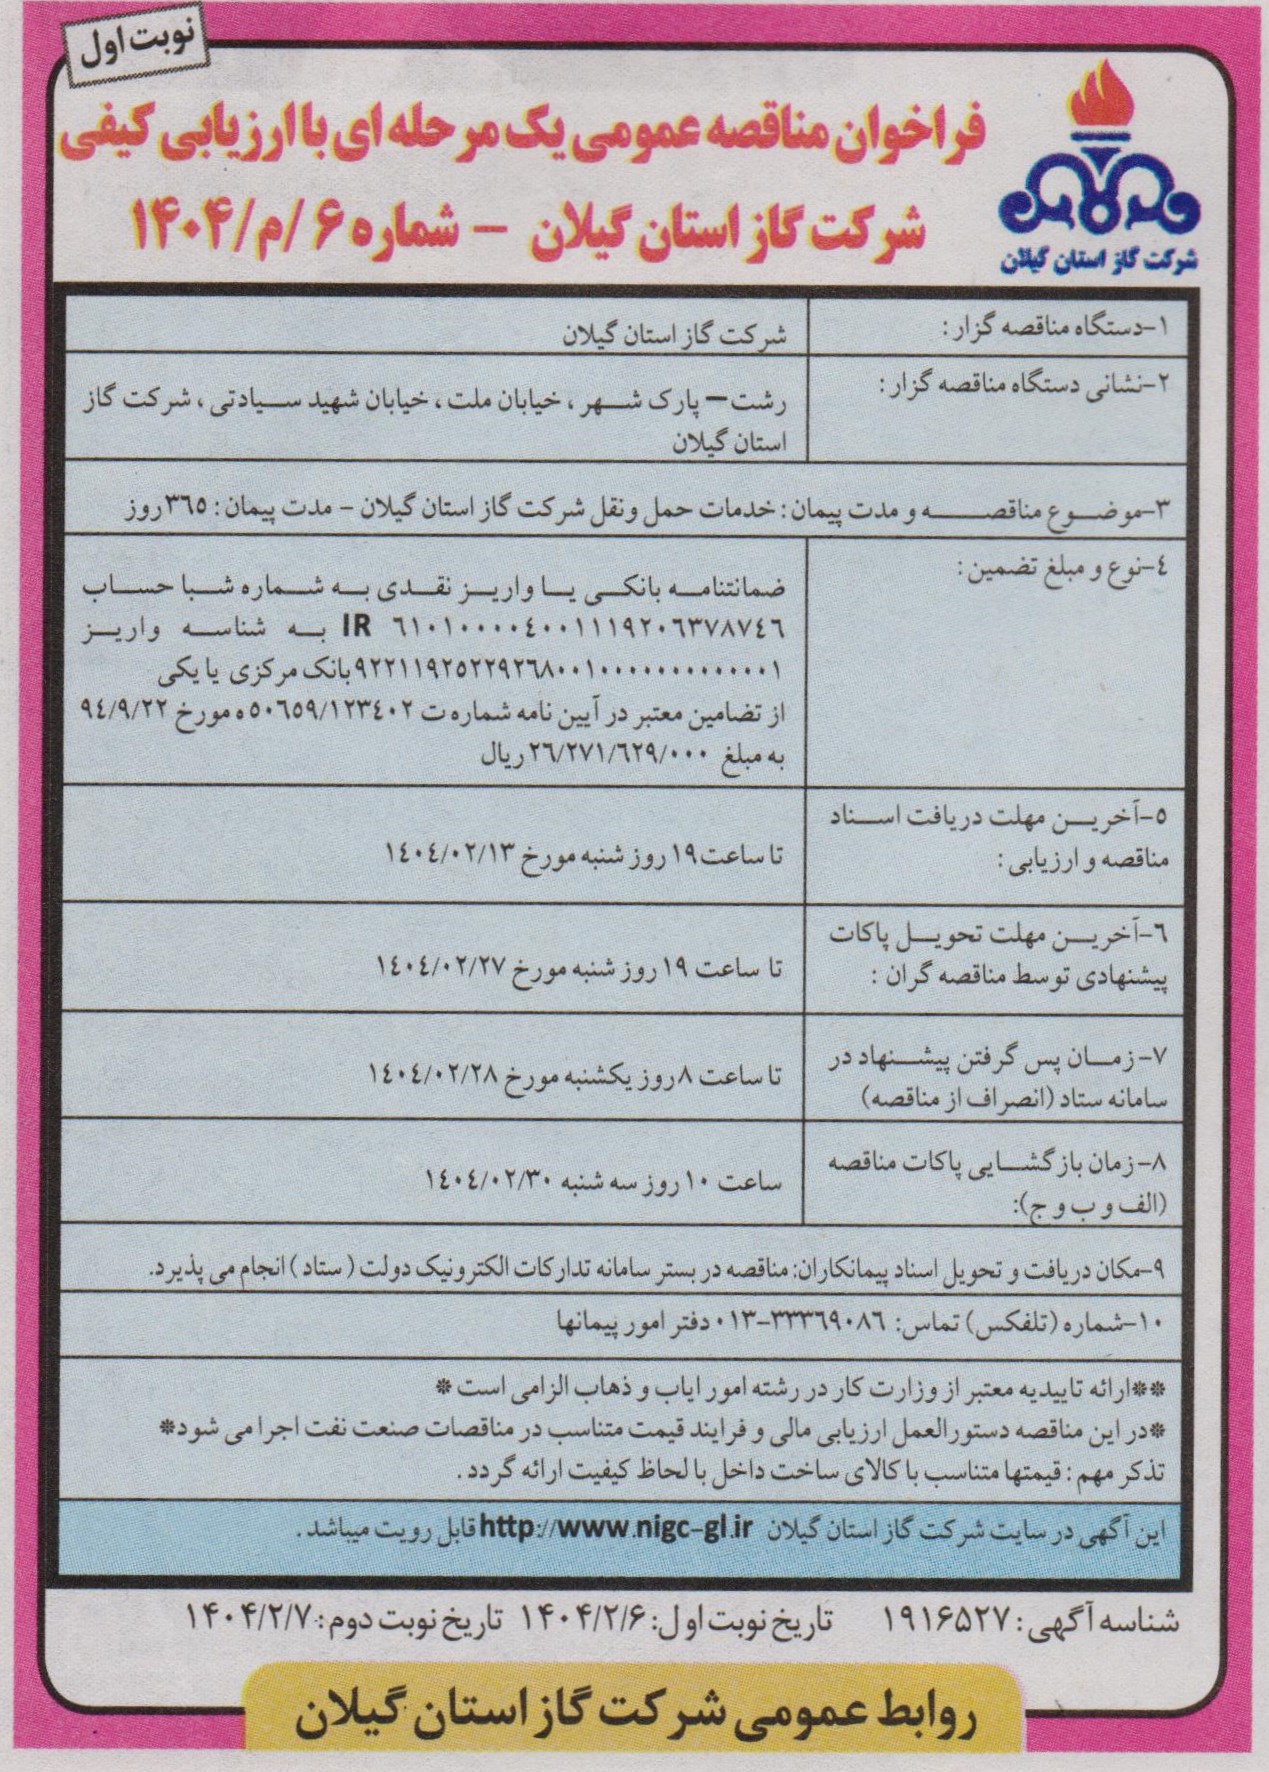 نوبت اول
فراخوان مناقصه عمومی یک مرحله ای با ارزیابی کیفی
شرکت گاز استان گیلان – شماره ۶ /م/۱۴۰۴
شرکت گاز استان گیلان
۱-دستگاه مناقصه گزار:
شرکت گاز استان گیلان
۲-نشانی دستگاه مناقصه گزار:
رشت– پارک شهر ، خیابان ملت ، خیابان شهید سیادتی ، شرکت گاز
استان گیلان
۳-موضوع مناقصه و مدت پیمان: خدمات حمل ونقل شرکت گاز استان گیلان – مدت پیمان: ۳٦٥روز
٤-نوع و مبلغ تضمین:
ضمانتنامه بانکی یا واریز نقدی به شماره شبا حساب
IR ٦١٠١٠٠٠٠٤٠٠١١١٩٢٠٦٣٧٨٧٤٦ به شناسه واریز
٩٢٢١١٩٢٥٢٢٩٢٦٨٠٠١٠٠٠٠٠٠٠٠٠٠٠٠٠١بانک مرکزی یا یکی
از تضامین معتبر در آیین نامه شماره ت ٥٠٦٥٩/١٢٣٤٠٢ه مورخ ٩٤/٩/٢٢
به مبلغ ٢٦/٢٧١/٦٢٩/٠٠٠ریال
٥-آخرین مهلت دریافت اسناد
مناقصه و ارزیابی:
تا ساعت۱۹ روز شنبه مورخ ١٤٠٤/٠٢/١٣
٦-آخرین مهلت تحویل پاکات
پیشنهادی توسط مناقصه گران :
تا ساعت ۱۹ روز شنبه مورخ ١٤٠٤/٠٢/٢٧
۷-زمان پس گرفتن پیشنهاد در
سامانه ستاد (انصراف از مناقصه)
تا ساعت ۸روز یکشنبه مورخ ١٤٠٤/٠٢/٢٨
۸-زمان بازگشایی پاکات مناقصه
(الف و ب و ج):
ساعت ۱۰ روز سه شنبه ١٤٠٤/٠٢/٣٠
۹-مکان دریافت و تحویل اسناد پیمانکاران: مناقصه در بستر سامانه تدارکات الکترونیک دولت ( ستاد ) انجام می پذیرد.
۱۰-شماره (تلفکس) تماس: ۳۳۳٦۹۰۸٦-۰۱۳ دفتر امور پیمانها
**ارائه تاییدیه معتبر از وزارت کار در رشته امور ایاب و ذهاب الزامی است *
*در این مناقصه دستورالعمل ارزیابی مالی و فرایند قیمت متناسب در مناقصات صنعت نفت اجرا می شود*
تذکر مهم : قیمتها متناسب با کالای ساخت داخل با لحاظ کیفیت ارائه گردد .
این آگهی در سایت شرکت گاز استان گیلان http://www.nigc-gl.ir قابل رویت میباشد .
شناسه آگهی: ۱۹۱۶۵۲۷ تاریخ نوبت اول: ۱۴۰۴/۲/۶ تاریخ نوبت دوم: ۱۴۰۴/۲/۷
روابط عمومی شرکت گاز استان گیلان